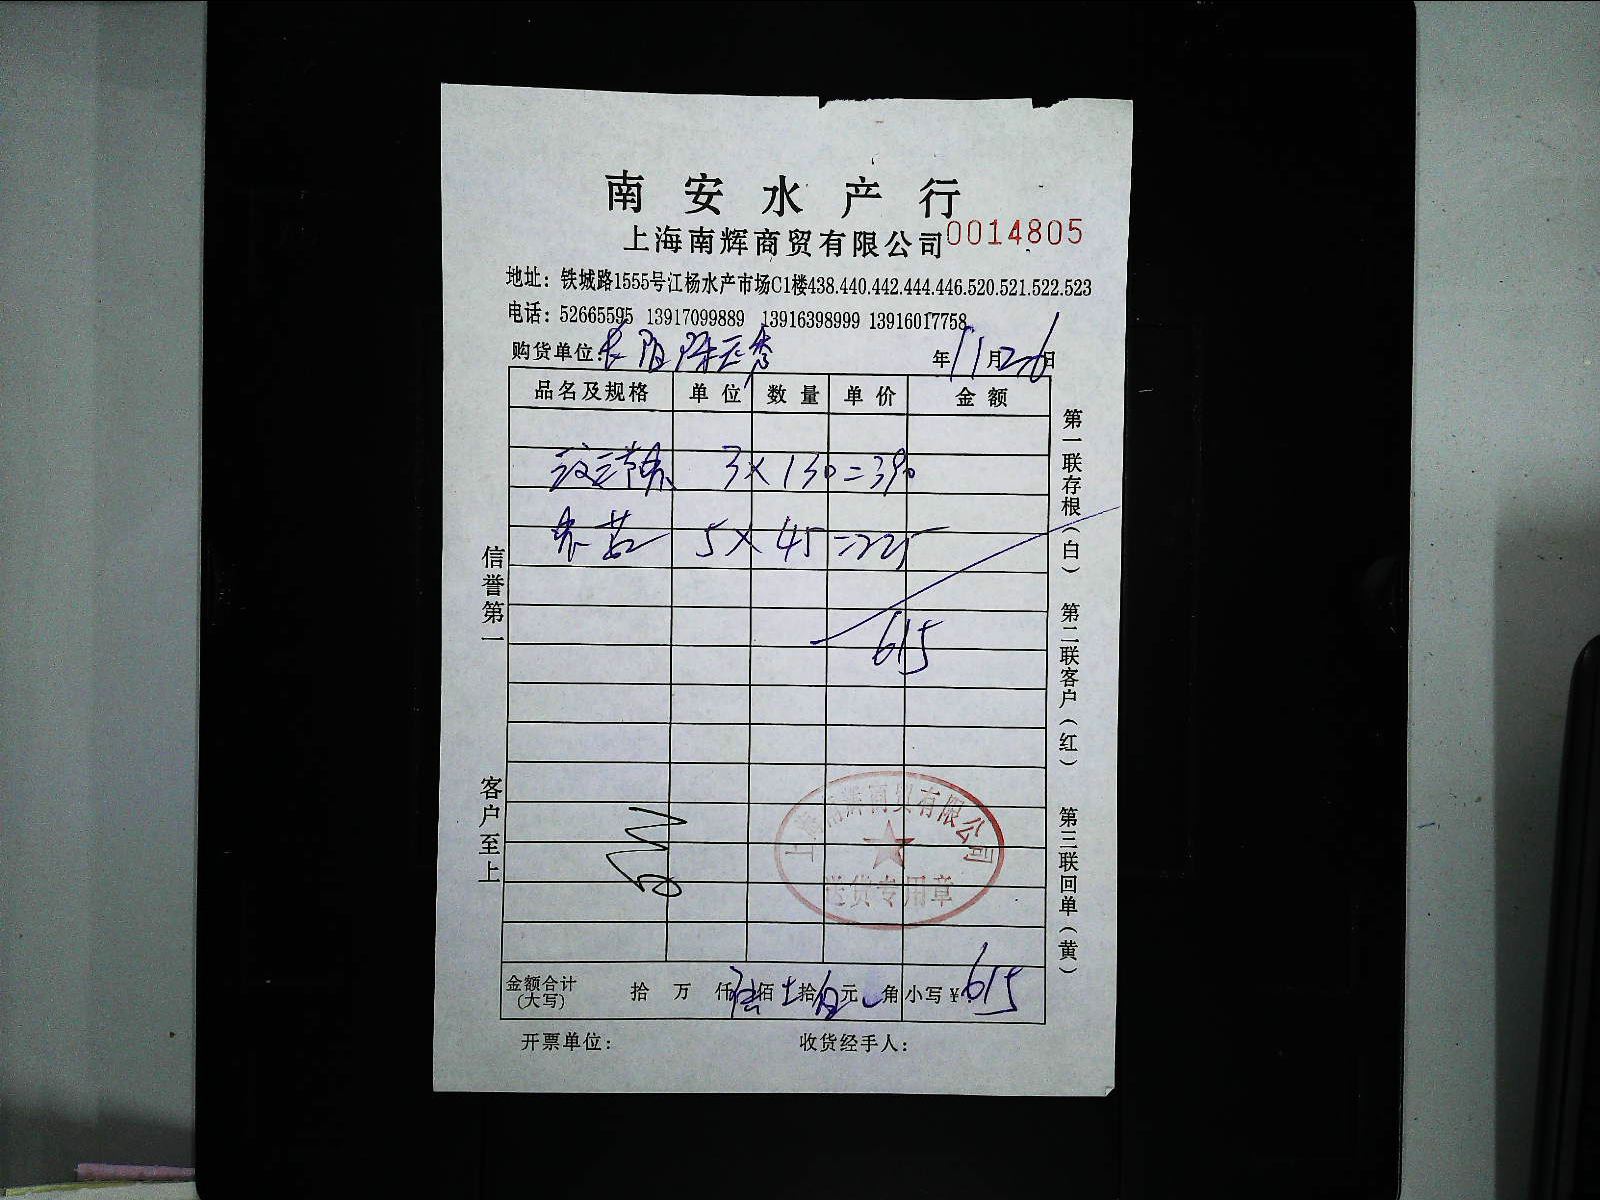 南安水产行
上海南辉商贸有限公司 0014805
地址：铁城路1555号江杨水产市场C1楼438.440.442.444.446.520.521.522.523
电话：52665595 13917099889 13916398999 13916017758
购货单位： 年11月26日
品名及规格 单位 数量 单价 金额
3×130=390
5×45=225
615
信誉第一
客户至上
第一联存根（白） 第二联客户（红） 第三联回单（黄）
上海南辉商贸有限公司
送货专用章
金额合计（大写） 拾 万 仟 陆佰 拾 元 角 小写¥ 615
开票单位： 收货经手人：